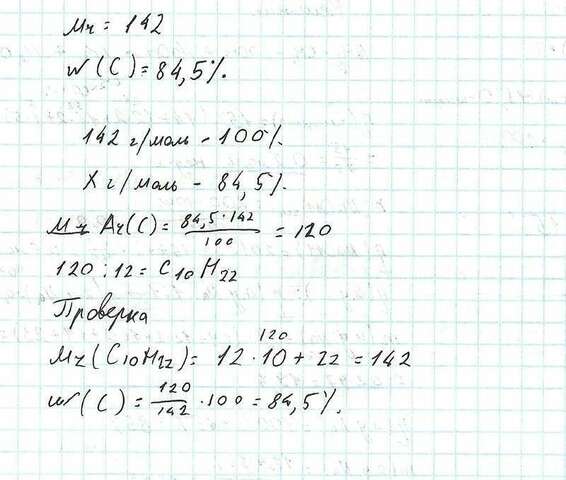 Mr = 142
w(C) = 84,5%.
142 г/моль - 100%.
X г/моль - 84,5%.
Mr Ar(C) = 84,5·142/100 = 120
120 : 12 = C10H22
Проверка
120
Mr(C10H22) = 12·10 + 22 = 142
w(C) = 120/142 · 100 = 84,5%.